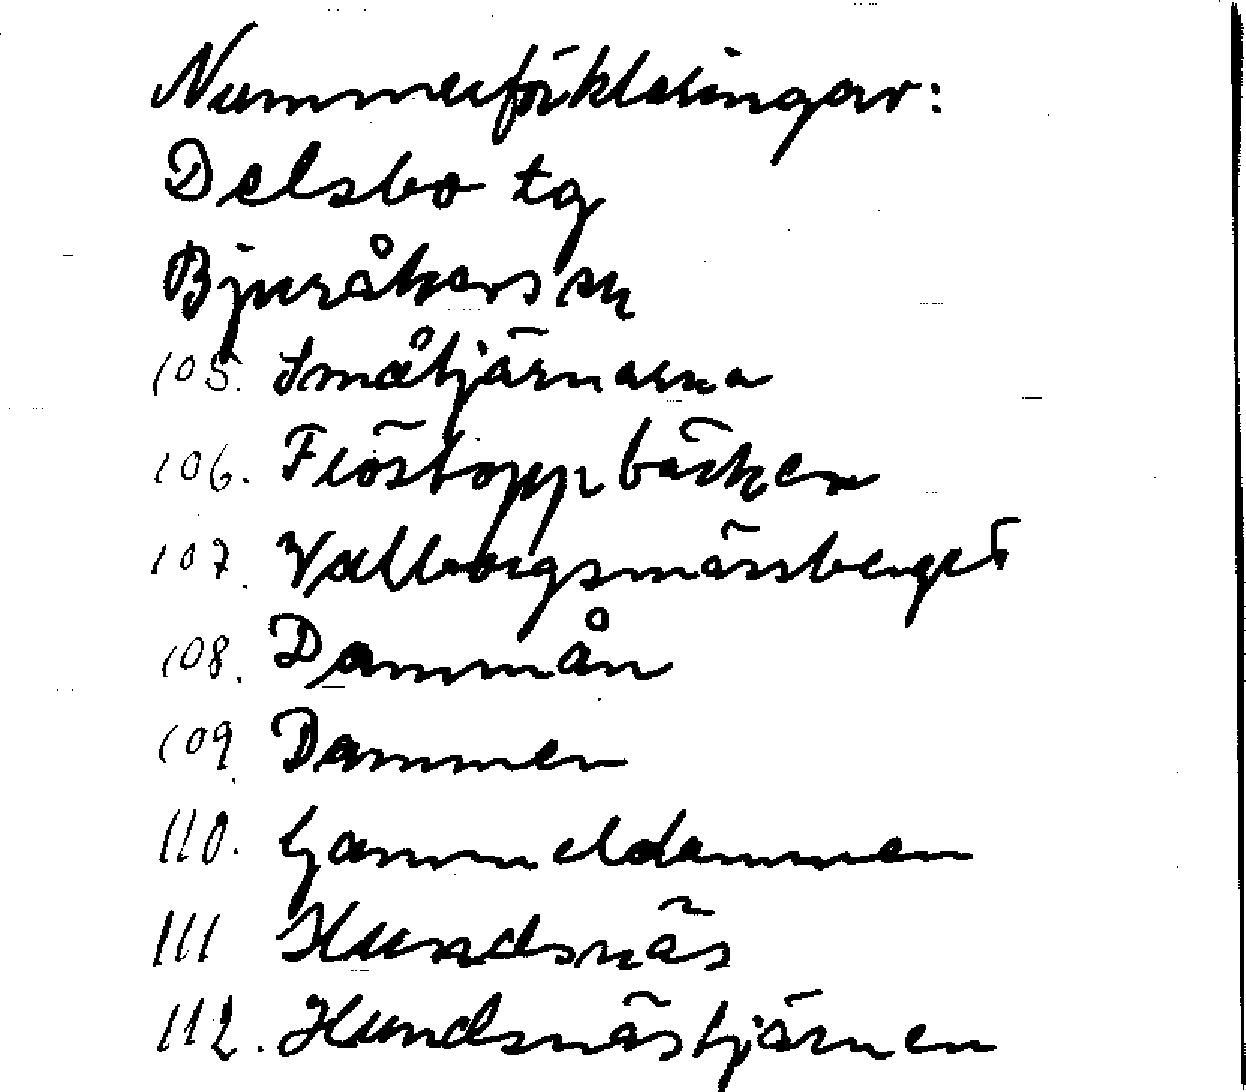 Nummerförklaringar:
Delsbo tg
Bjuråkers sn
105. Småtjärnarna
106. Fröstoppbäcken
107. Valborgsmässberget
108. Dammån
109. Dammen
110. Gammeldammen
111 Hundsnäs
112. Hundsnästjärnen